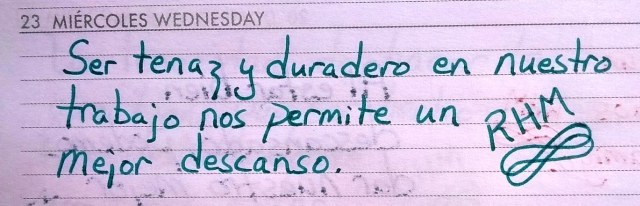 23 MIÉRCOLES WEDNESDAY
Ser tenaz y duradero en nuestro
trabajo nos permite un RHM
mejor descanso.